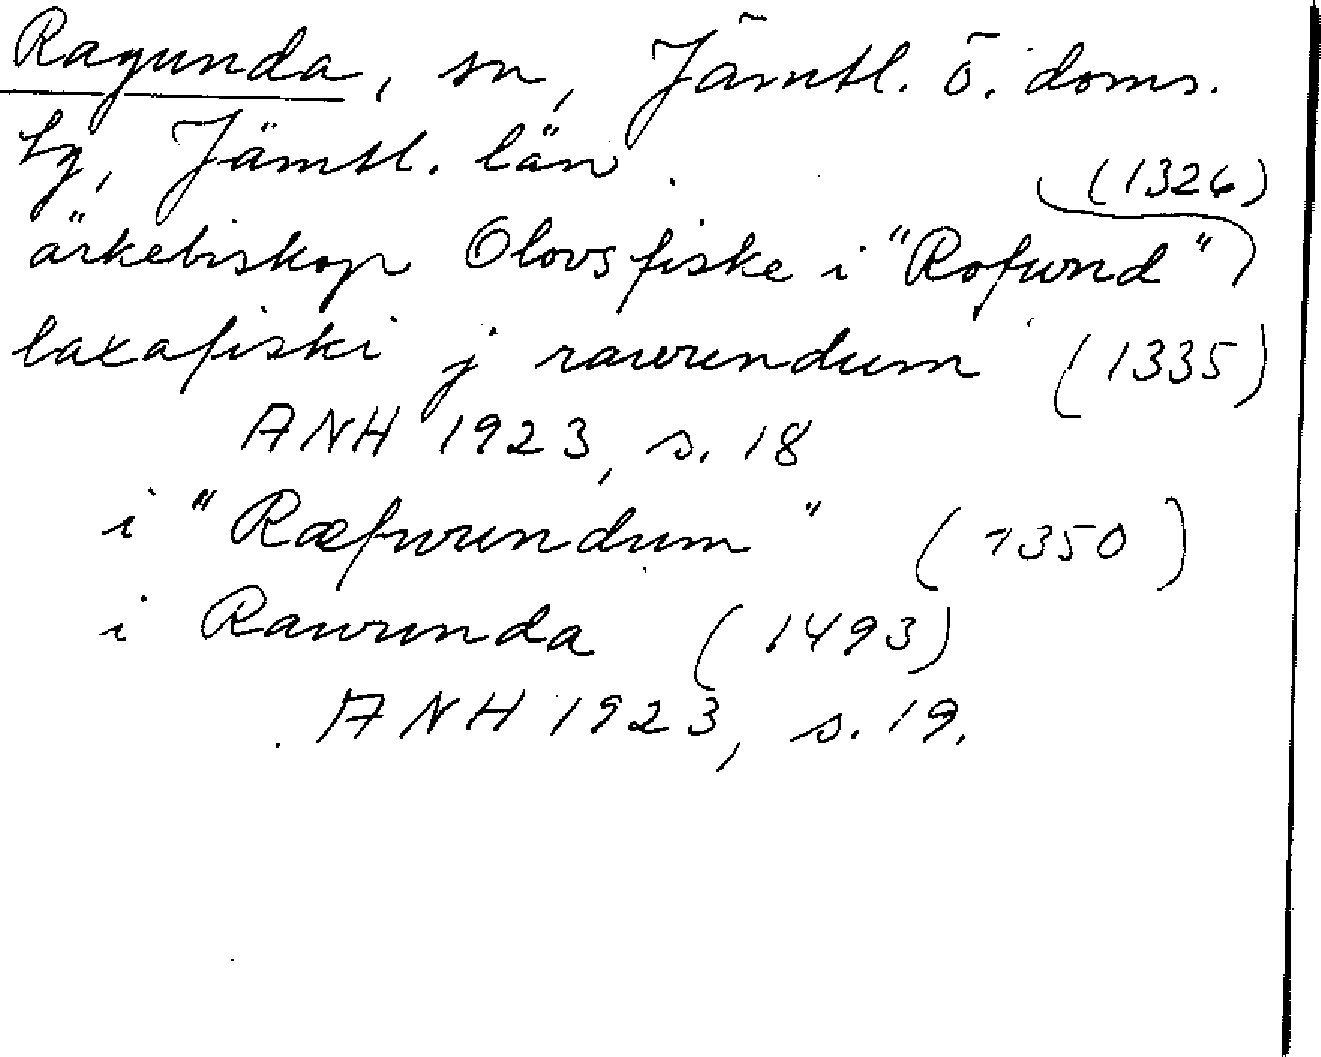 Ragunda, sn, Jämtl. ö. doms.
lg, Jämtl. län.
(1326)
ärkebiskop Olovs fiske i "Rofund"
laxafiski j rawundum (1335)
ANH 1923, s. 18
i "Ræfwundum" (1350)
i Rawunda (1493)
ANH 1923, s. 19.